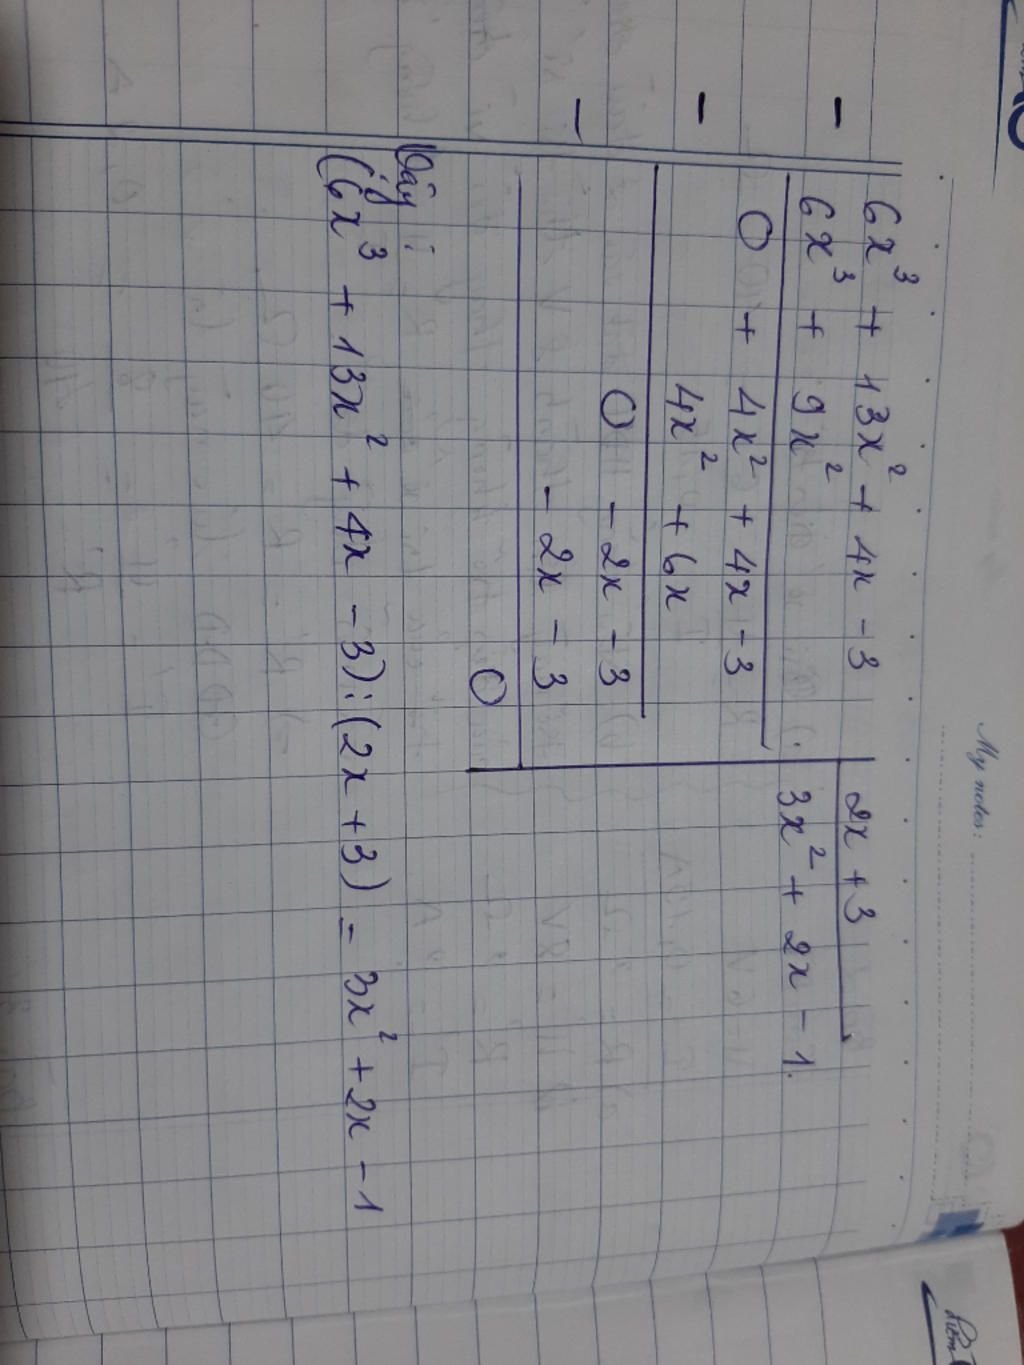 My notes:
6x³ + 13x² + 4x - 3 | 2x + 3
- 6x³ + 9x² | 3x² + 2x - 1.
0 + 4x² + 4x - 3
- 4x² + 6x
0 - 2x - 3
- - 2x - 3
0
Vậy :
(6x³ + 13x² + 4x - 3) : (2x + 3) = 3x² + 2x - 1